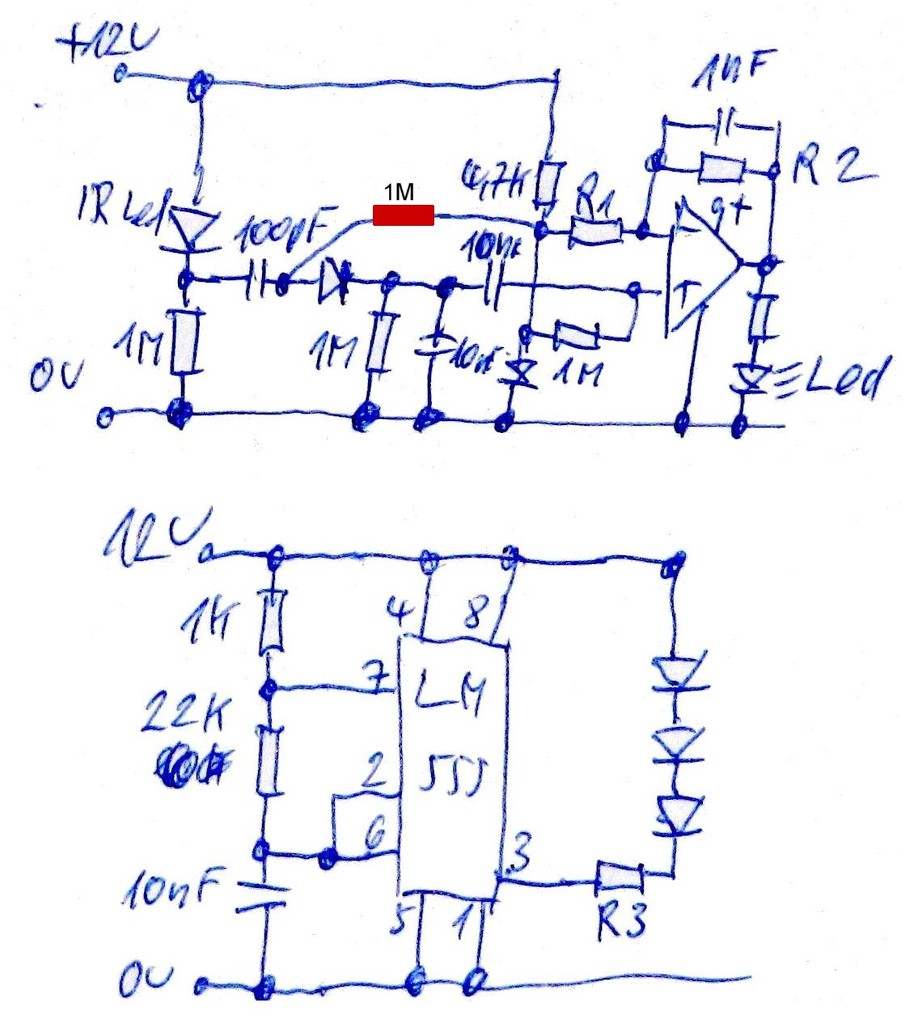 +12V
1nF
R2
4,7K
R1
1M
IR Led
100pF
10nF
1M
1M
10nF
1M
0V
Led
12V
1K
4
8
7
LM
555
22K
2
6
3
10nF
5
1
R3
0V